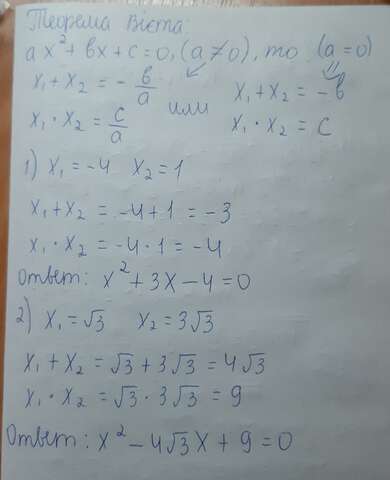 Теорема Виета:
ax² + bx + c = 0, (a ≠ 0), то (a = 0)
x₁ + x₂ = - b/a или x₁ + x₂ = - b
x₁ · x₂ = c/a x₁ · x₂ = c
1) x₁ = -4 x₂ = 1
x₁ + x₂ = -4 + 1 = -3
x₁ · x₂ = -4 · 1 = -4
Ответ: x² + 3x - 4 = 0
2) x₁ = √3 x₂ = 3√3
x₁ + x₂ = √3 + 3√3 = 4√3
x₁ · x₂ = √3 · 3√3 = 9
Ответ: x² - 4√3x + 9 = 0